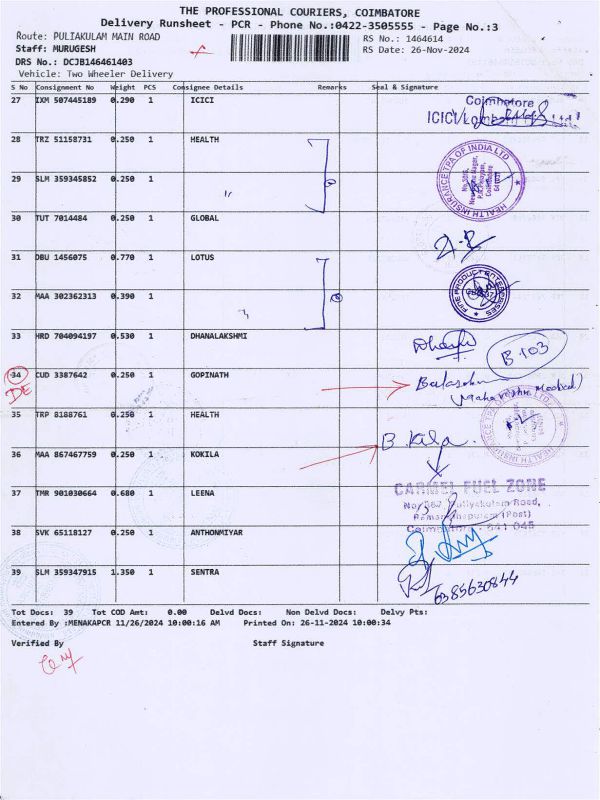 THE PROFESSIONAL COURIERS, COIMBATORE
Delivery Runsheet - PCR - Phone No.:0422-3505555 - Page No.:3
Route: PULIAKULAM MAIN ROAD
RS No.: 1464614
Staff: MURUGESH
RS Date: 26-Nov-2024
DRS No.: DCJB146461403
Vehicle: Two Wheeler Delivery
S No Consignment No Weight PCS Consignee Details Remarks Seal & Signature
27 IXM 507445189 0.290 1 ICICI
Coimbatore
28 TRZ 51158731 0.250 1 HEALTH
HEALTH INSURANCE TPA OF INDIA LTD
29 SLM 359345852 0.250 1
30 TUT 7014484 0.250 1 GLOBAL
31 DBU 1456075 0.770 1 LOTUS
FINE PRODUCT ENTERPRISES
32 MAA 302362313 0.390 1
33 HRD 704094197 0.530 1 DHANALAKSHMI
B 103
34 CUD 3387642 0.250 1 GOPINATH
DE
35 TRP 8188761 0.250 1 HEALTH
HEALTH INSURANCE TPA OF INDIA LTD
36 MAA 867467759 0.250 1 KOKILA
B. Kila.
37 TMR 901030664 0.680 1 LEENA
CARMEL FUEL ZONE
38 SVK 65118127 0.250 1 ANTHONMIYAR
39 SLM 359347915 1.350 1 SENTRA
6385630844
Tot Docs: 39 Tot COD Amt: 0.00 Delvd Docs: Non Delvd Docs: Delvy Pts:
Entered By :MENAKAPCR 11/26/2024 10:00:16 AM Printed On: 26-11-2024 10:00:34
Verified By Staff Signature